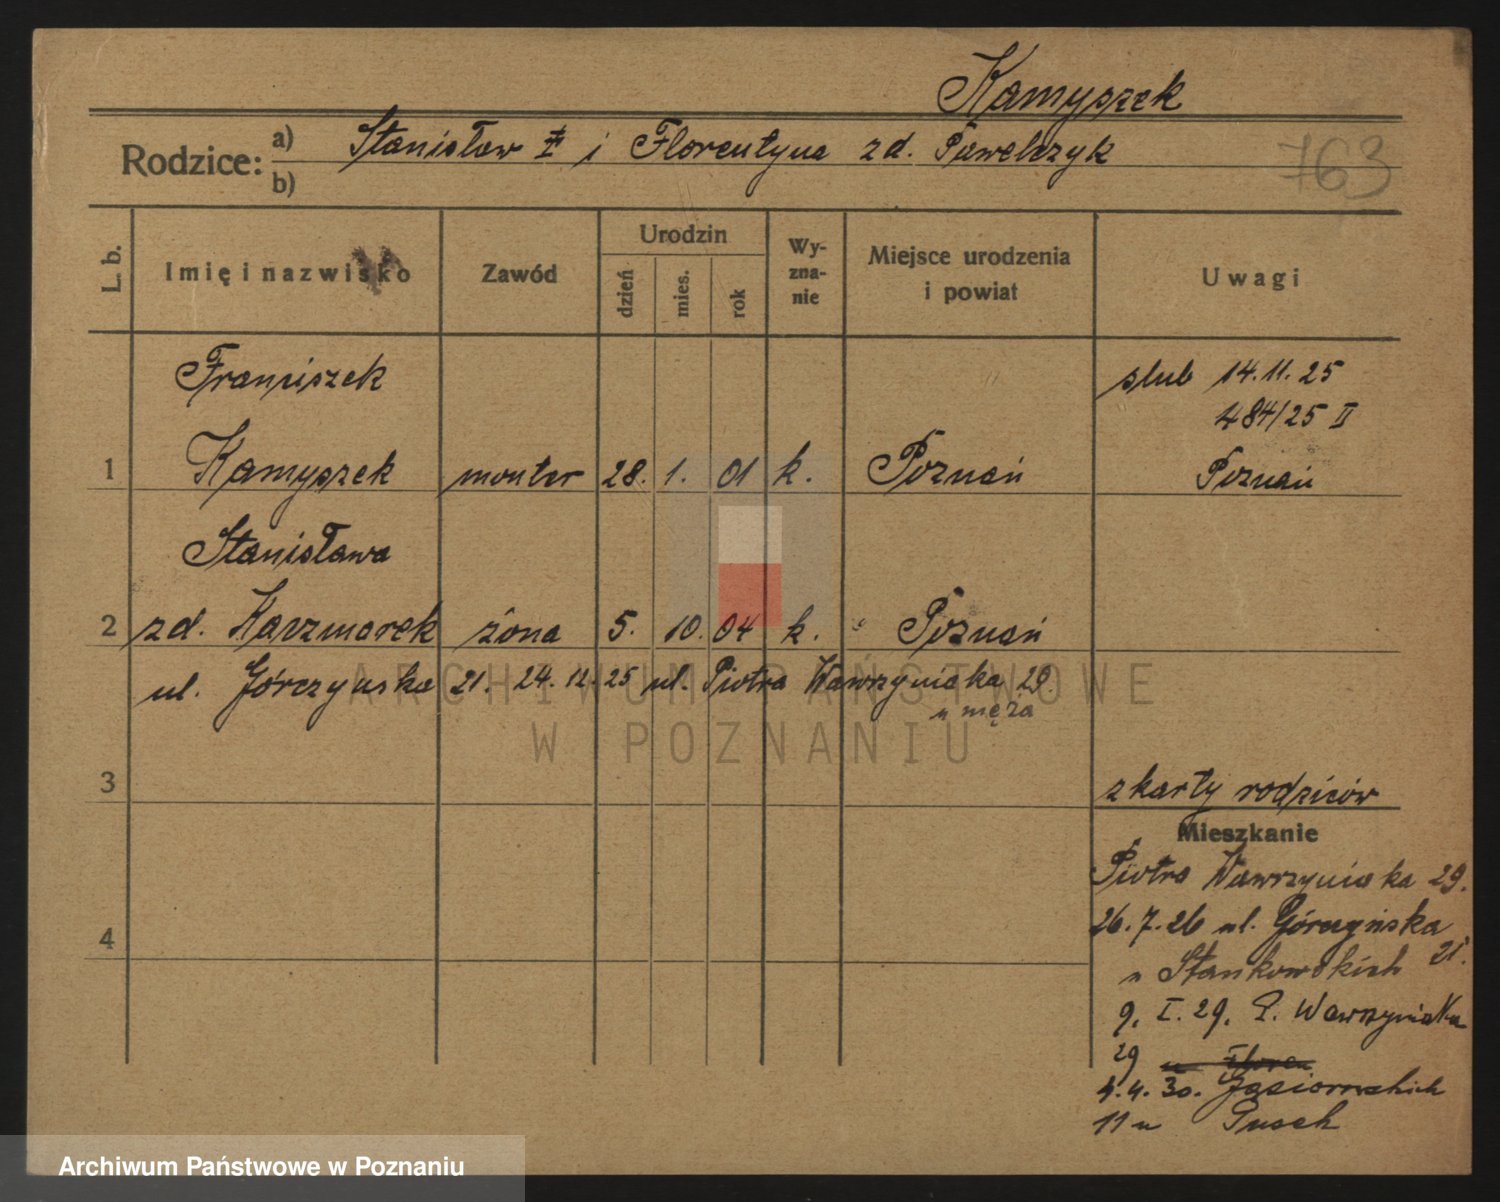 Kamyszek
Rodzice: a) Stanisław ‡ i Florentyna zd. Pawelczyk
b)
763
L. b.
Imię i nazwisko
Zawód
Urodzin
dzień
mies.
rok
Wy-
zna-
nie
Miejsce urodzenia
i powiat
Uwagi
Franciszek
slub 14.11.25
484/25 II
1 Kamyszek monter 28. 1. 01 k. Poznań Poznań
Stanisława
2 zd. Kaczmarek żona 5. 10. 04 k. Poznań
ul. Górczyńska 21. 24.12.25 ul. Piotra Wawrzyniaka 29.
u męża
ARCHIWUM PAŃSTWOWE
W POZNANIU
3
z karty rodziców
Mieszkanie
Piotra Wawrzyniaka 29.
26.7.26 ul. Górczyńska
21.
4
u Stankowskich
9. I. 29. P. Wawrzyniaka
29
4.4.30. Jasiorowskich
11 u
Archiwum Państwowe w Poznaniu